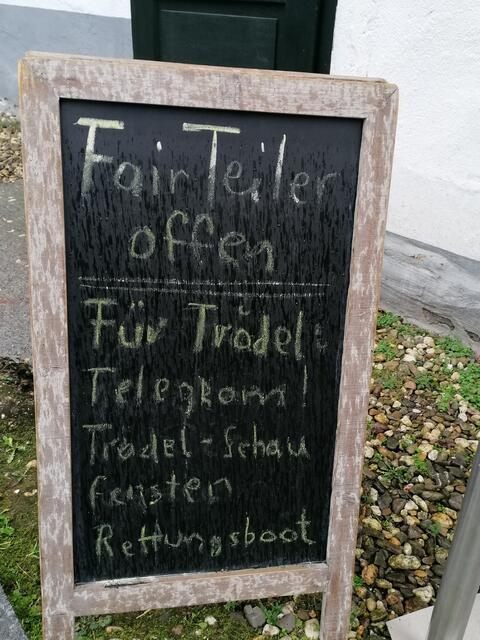 FairTeiler
offen
Für Trödel:
Telegkom!
Trödel-Schau
fenster
Rettungsboot